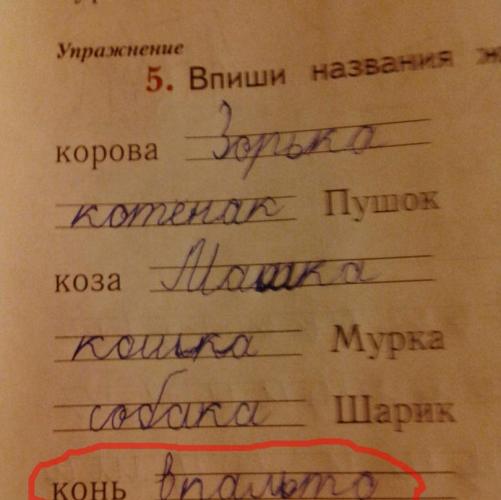 Упражнение
5. Впиши названия
корова Зорька
котенак Пушок
коза Машка
кошка Мурка
собака Шарик
конь впальто